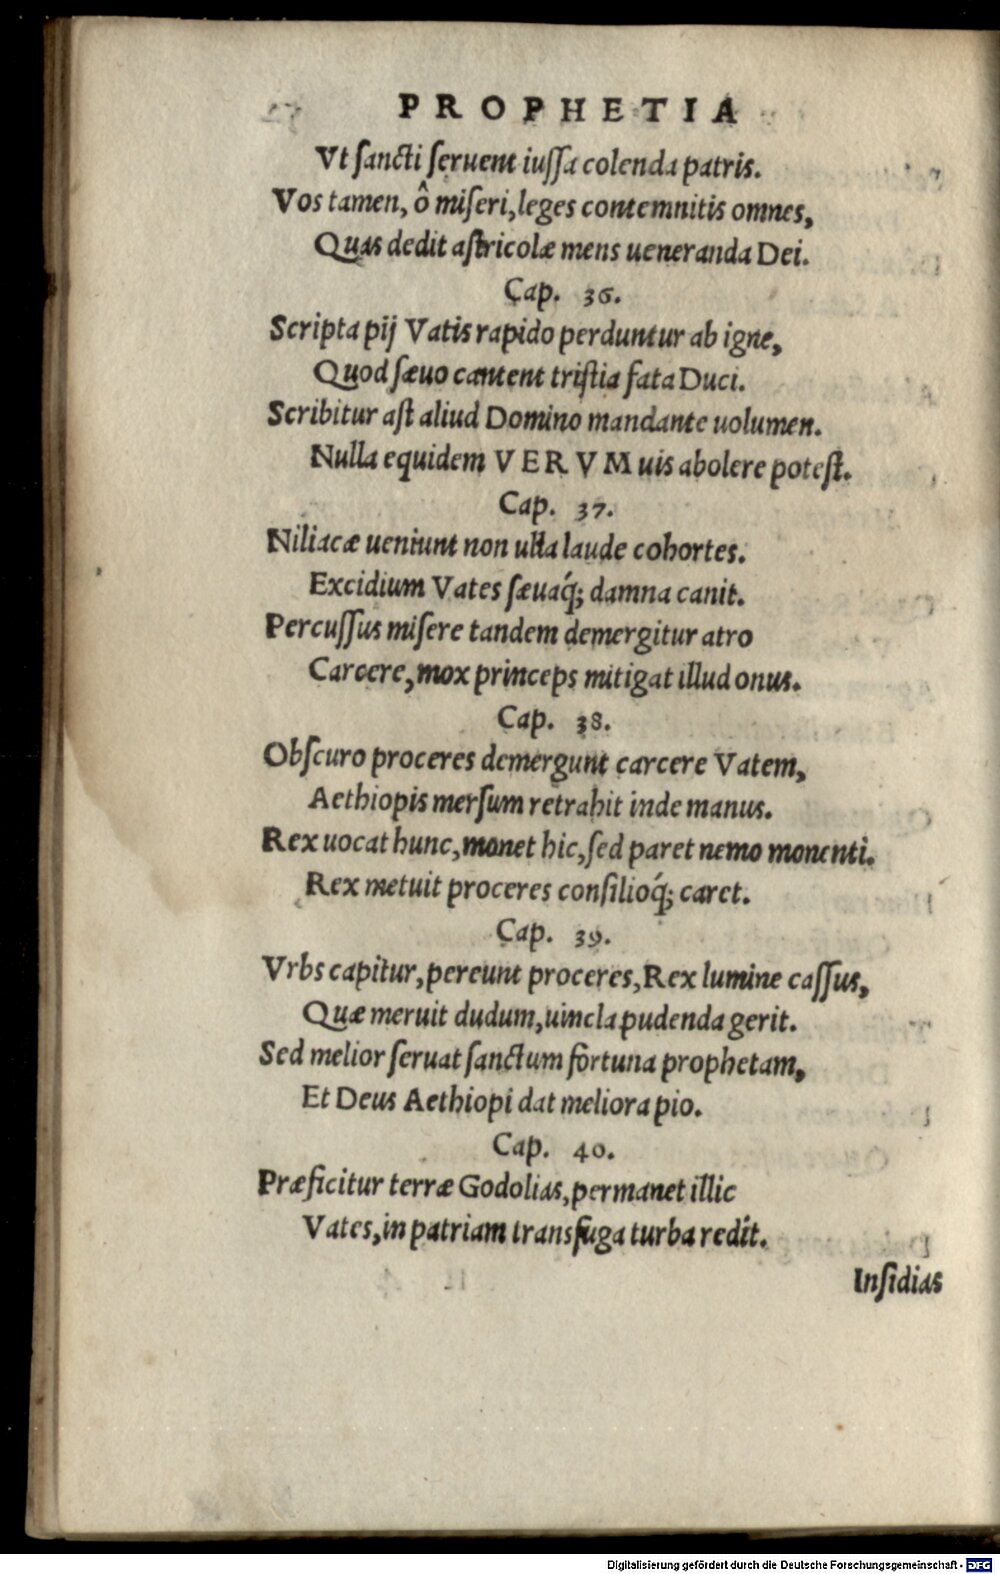 PROPHETIA
Vt ſancti ſeruent iuſſa colenda patris.
Vos tamen, ô miſeri, leges contemnitis omnes,
Quas dedit aſtricolæ mens ueneranda Dei.
Cap. 36.
Scripta pij Vatis rapido perduntur ab igne,
Quod ſæuo cantent triſtia fata Duci.
Scribitur aſt aliud Domino mandante uolumen.
Nulla equidem VERVM uis abolere poteſt.
Cap. 37.
Niliacæ ueniunt non ulla laude cohortes.
Excidium Vates ſæuaq́; damna canit.
Percuſſus miſere tandem demergitur atro
Carcere, mox princeps mitigat illud onus.
Cap. 38.
Obſcuro proceres demergunt carcere Vatem,
Aethiopis merſum retrahit inde manus.
Rex uocat hunc, monet hic, ſed paret nemo monenti.
Rex metuit proceres conſilioq́; caret.
Cap. 39.
Vrbs capitur, pereunt proceres, Rex lumine caſſus,
Quæ meruit dudum, uincla pudenda gerit.
Sed melior ſeruat ſanctum fortuna prophetam,
Et Deus Aethiopi dat meliora pio.
Cap. 40.
Præficitur terræ Godolias, permanet illic
Vates, in patriam transfuga turba redit.
Inſidias
Digitalisierung gefördert durch die Deutsche Forschungsgemeinschaft - DFG